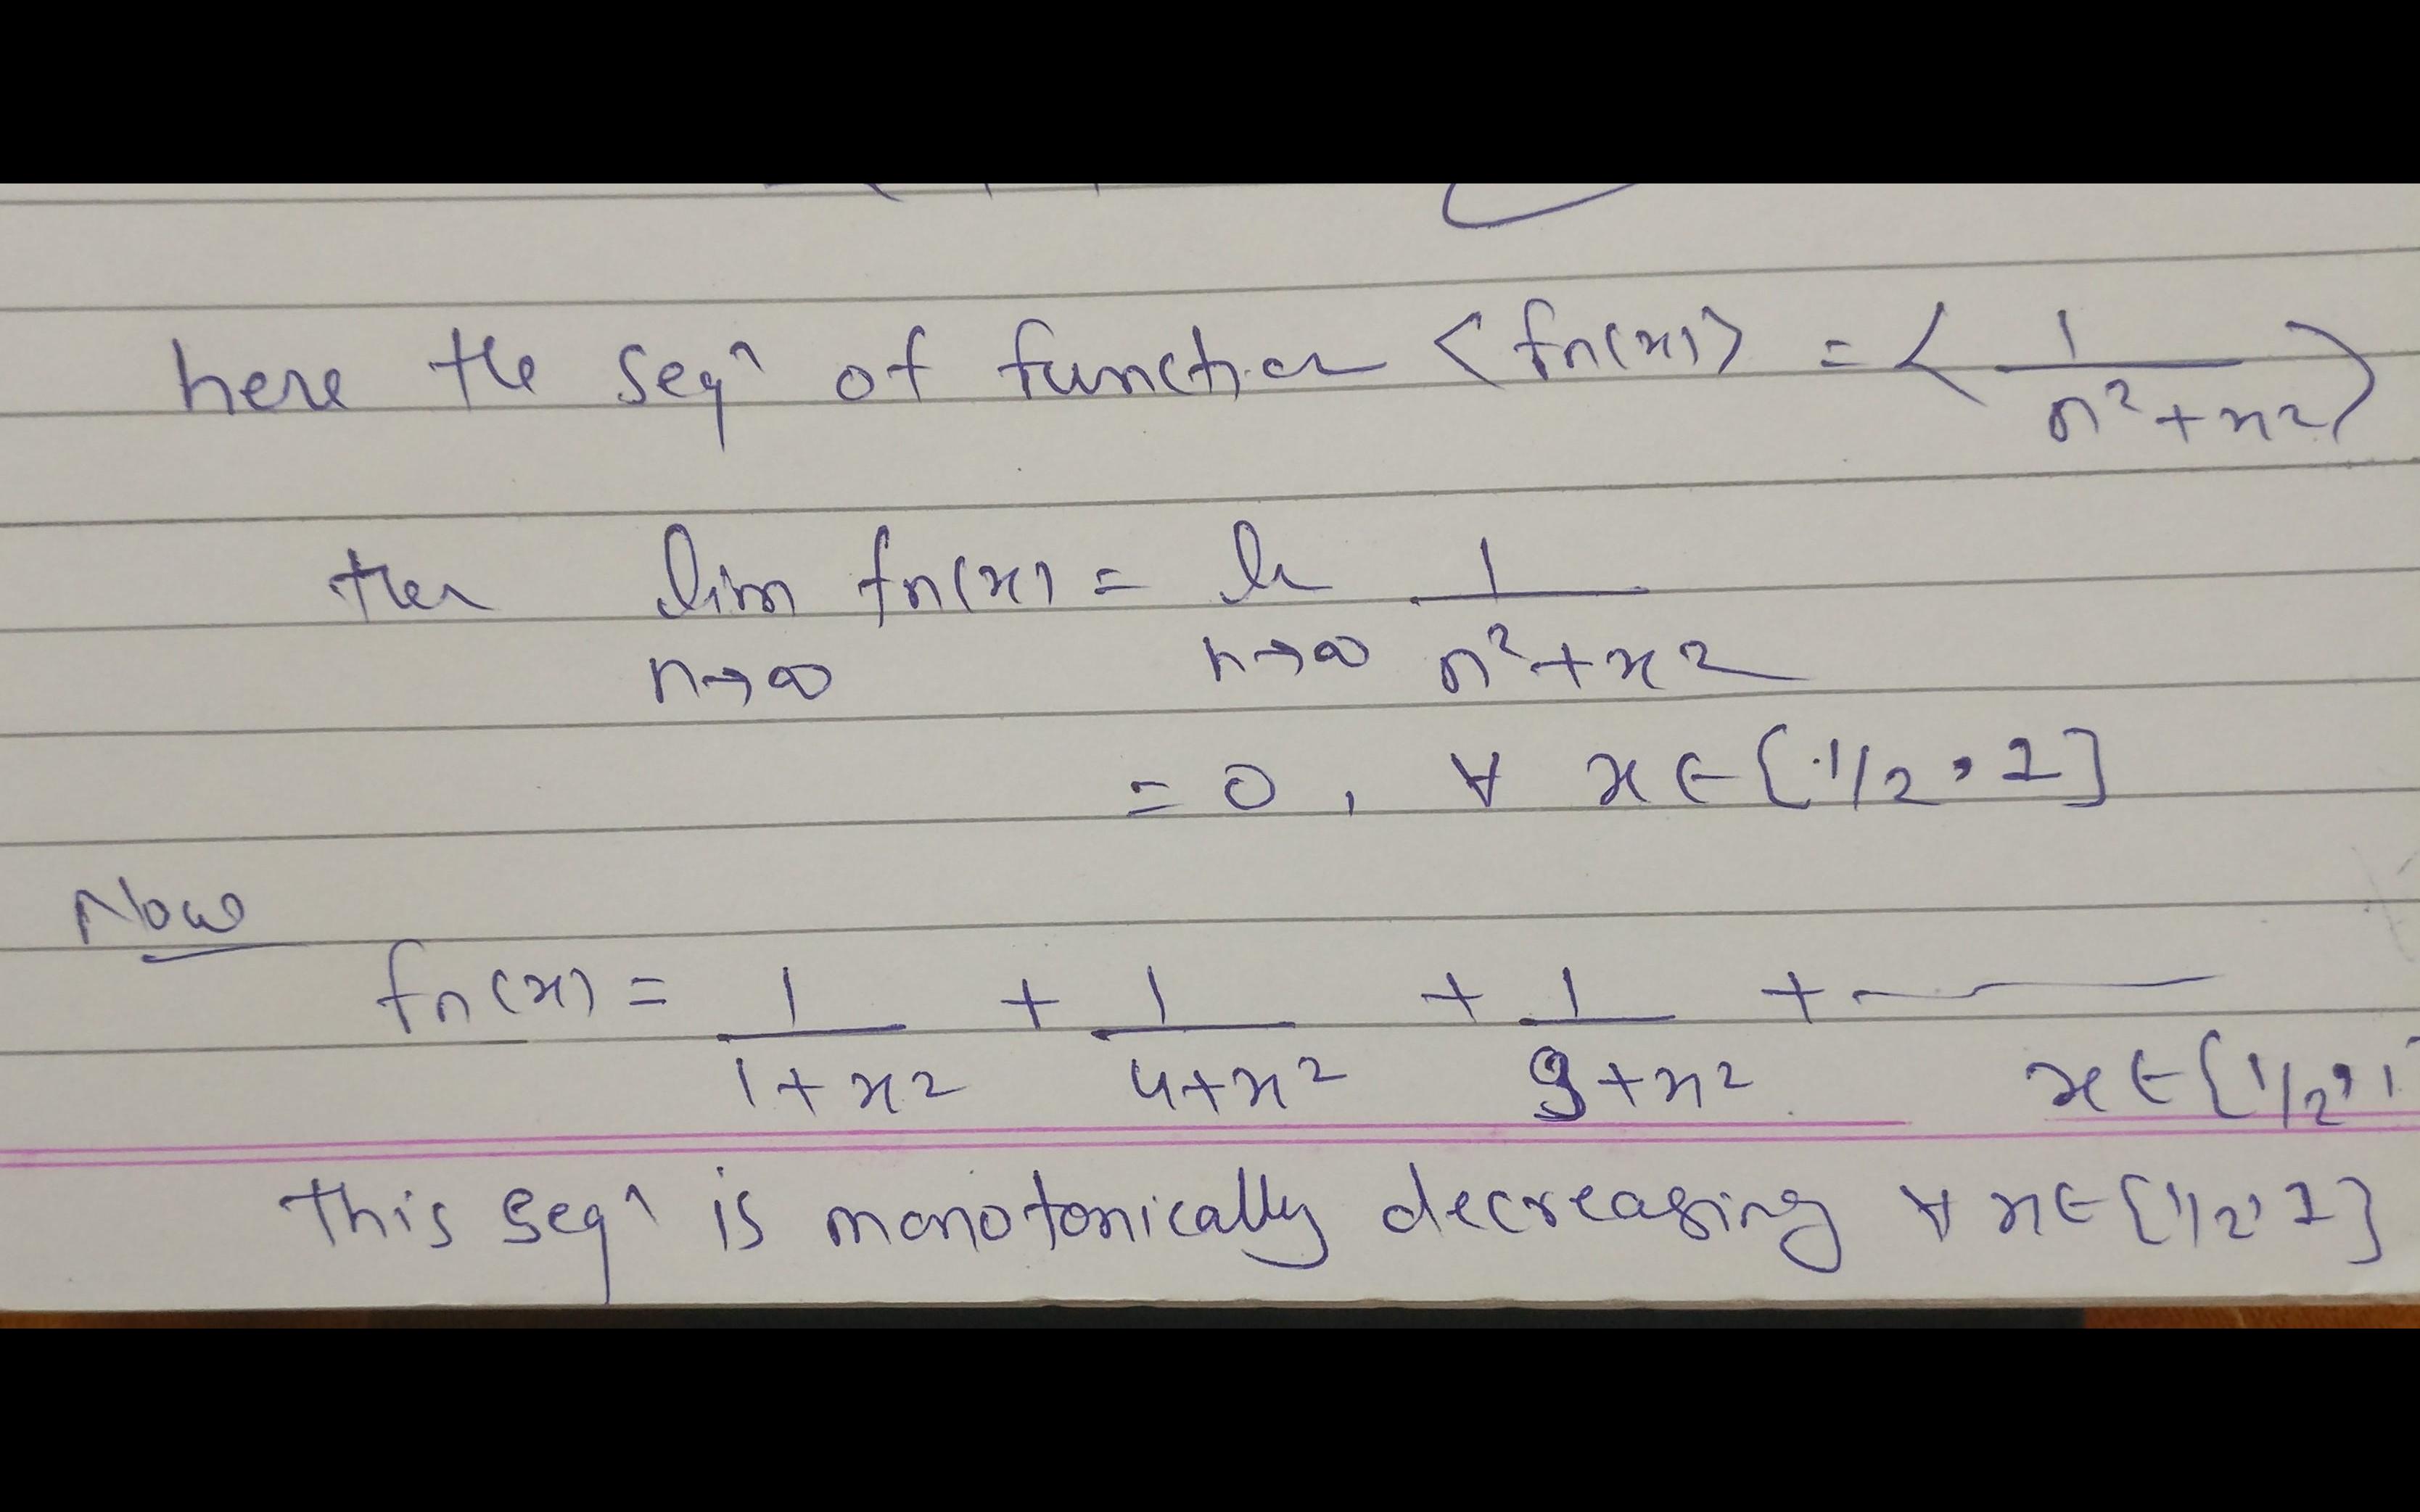 here the seqⁿ of function <fn(x)> = <1/(n²+x²)>
then lim n→∞ fn(x) = lim n→∞ 1/(n²+x²)
= 0, ∀ x∈[1/2, 1]
Now
fn(x) = 1/(1+x²) + 1/(4+x²) + 1/(9+x²) + —— x∈[1/2, 1
This seqⁿ is monotonically decreasing ∀ x∈[1/2, 1]